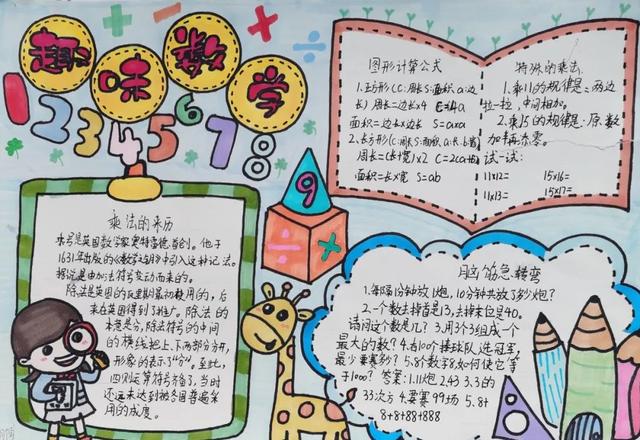 趣味数学
1 2 3 4 5 6 7 8
9
乘法的来历
乘号是英国数学家奥特雷德首创。他于
1631年出版的《数学之钥》中引入这种记法。
据说是由加法符号变动而来的。
除法是英国的瓦里斯最初使用的,后
来在英国得到了推广。除法的
本意是分,除法符号的中间
的横线把上、下两部分分开,
形象的表示了“分”。至此,
四则运算符号齐备了,当时
还远未达到被各国普遍采
用的成度。
图形计算公式
1.正方形(C:周长S:面积a:边
长)周长=边长×4 C=4a
面积=边长×边长 S=a×a
2.长方形(C:周长S:面积a:长b:宽)
周长=(长+宽)×2 C=2(a+b)
面积=长×宽 S=ab
特殊的乘法
1.乘11的规律是:两边
拉一拉,中间相加。
2.乘15的规律是:原数
加半添零。
试一试:
11×12= 15×16=
11×13= 15×17=
脑筋急转弯
1.每隔1分钟放1炮,10分钟共放了多少炮?
2.一个数去掉首是13,去掉末位是40。
请问这个数是几?3.用3个3组成一个
最大的数?4.有100个棒球队选冠军,
最少要赛多少?5.8个数字8,如何使它等
于1000?答案:1.11炮2.43 3.3的
33次方4.要赛99场 5.8+
8+8+88+888